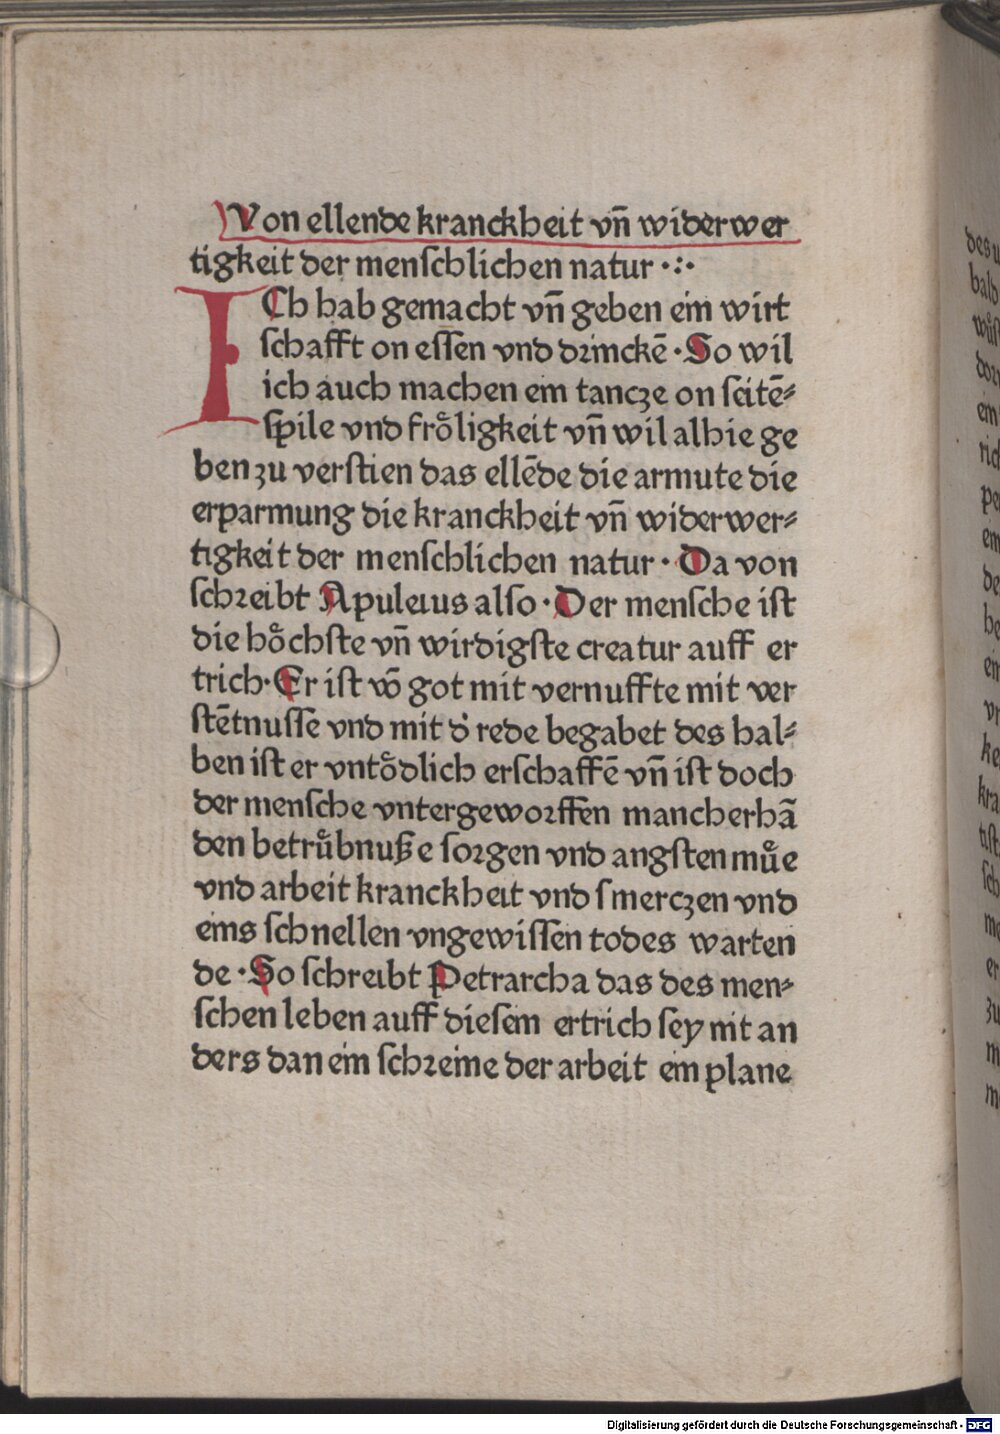 Von ellende kranckheit vn̄ widerwer
tigkeit der menſchlichen natur ·:·
ICh hab gemacht vn̄ geben ein wirt
ſchafft on eſſen vnd drinckē · So wil
ich auch machen ein tancze on ſeitē⸗
ſpile vnd froͤligkeit vn̄ wil alhie ge
ben zu verſtien das ellēde die armute die
erparmung die kranckheit vn̄ widerwer⸗
tigkeit der menſchlichen natur · Da von
ſchreibt Apuleius alſo · Der menſche iſt
die hoͤchſte vn̄ wirdigſte creatur auff er
trich · Er iſt vō got mit vernuffte mit ver
ſtētnuſſe vnd mit d' rede begabet des hal⸗
ben iſt er vntoͤdlich erſchaffē vn̄ iſt doch
der menſche vntergeworffen mancherhā
den betruͤbnuße ſorgen vnd angſten muͤe
vnd arbeit kranckheit vnd ſmerczen vnd
eins ſchnellen vngewiſſen todes warten
de · So ſchreibt Petrarcha das des men⸗
ſchen leben auff dieſem ertrich ſey nit an
ders dan ein ſchreine der arbeit ein plane
des u
Digitalisierung gefördert durch die Deutsche Forschungsgemeinschaft - DFG